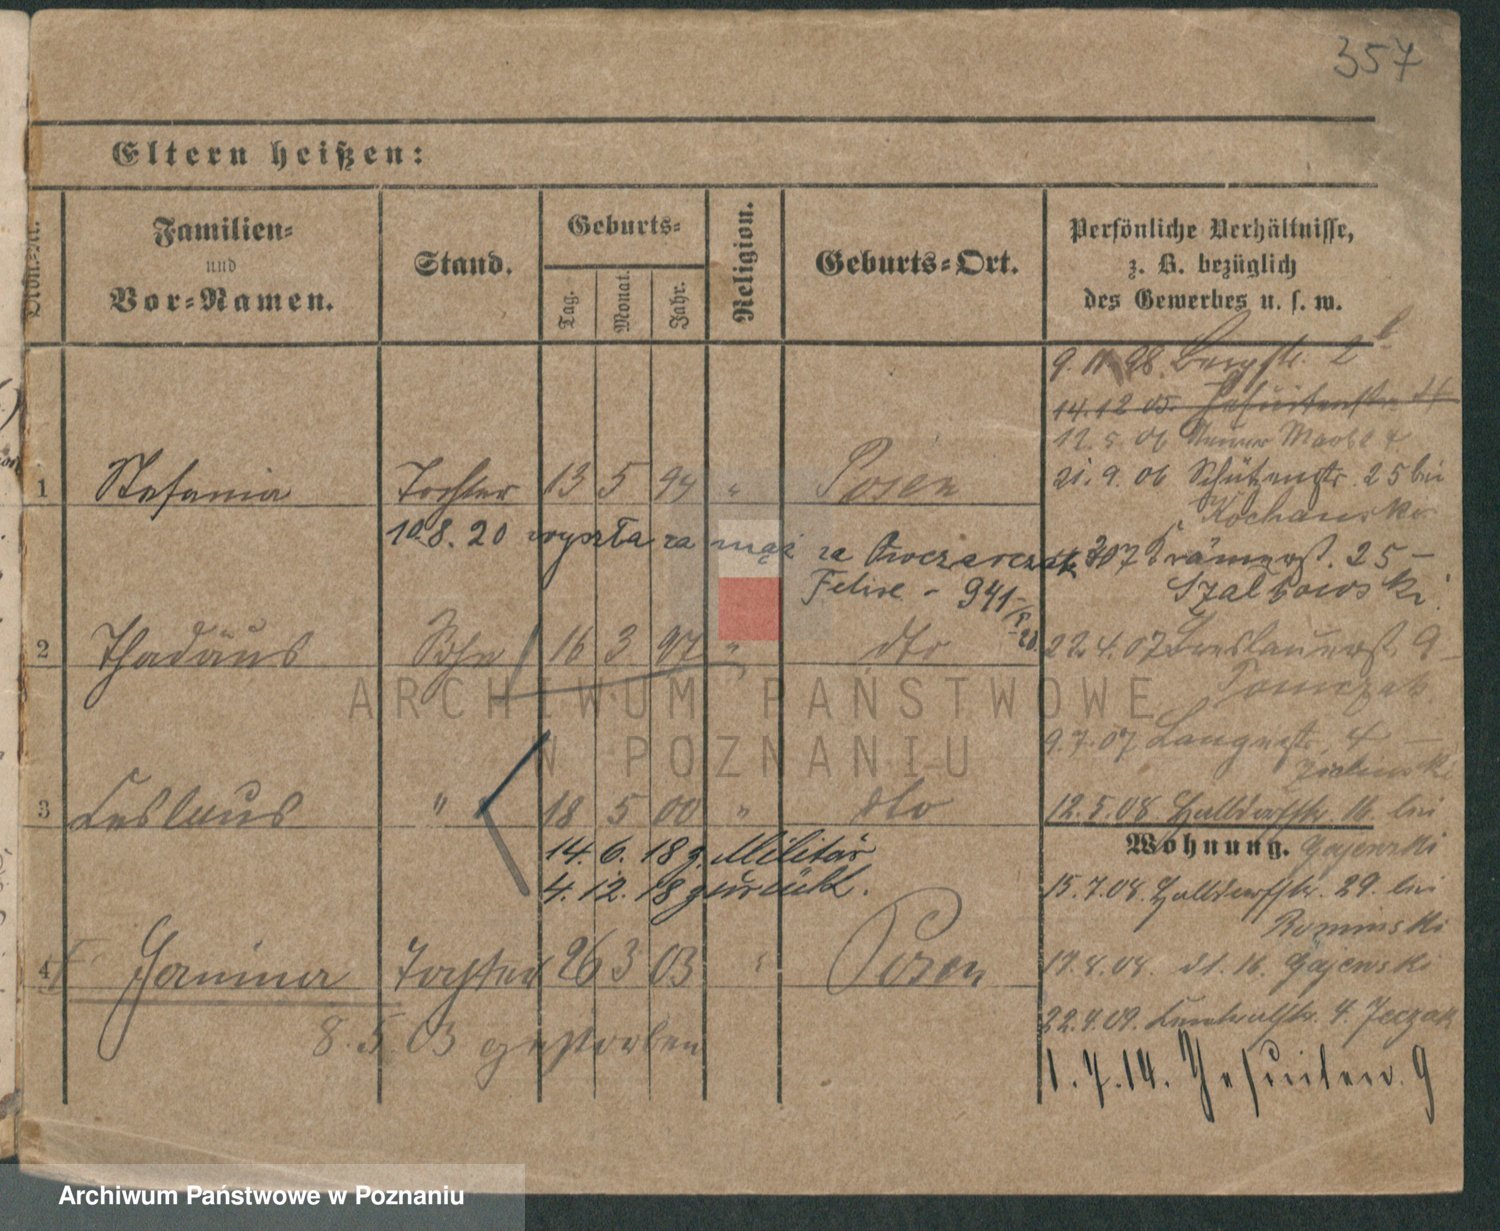 357
Eltern heißen:
Ordn.-Nr.
Familien-
und
Vor-Namen.
Stand.
Geburts-
Tag.
Monat.
Jahr.
Religion.
Geburts-Ort.
Persönliche Verhältnisse,
z. B. bezüglich
des Gewerbes u. s. w.
9. 11. 98. Bergstr. 2b
14.12 05. Jesuitenstr.
12. 5. 06
1 Stefania Tochter 13 5 94 " Posen
21. 9. 06 Schützenstr. 25 bei
Kochanski
10.8.20 wyszła za mąż za Owczarczak
Felixe - 941
07 Krämerst. 25 -
Szalkowski
2 Thadäus Sohn 16 3 97 " dto
22. 4. 07 Breslauerst. 9 -
Tomczak
9.7.07 Langestr. 4 -
Zielinski
3 Leslaus " 18 5 00 " dto
12. 5. 08 Halbdorfstr. 16. bei
Gajewski
14. 6. 18 z. Militär
4. 12. 18 zurück.
Wohnung.
15. 7. 08. Halbdorfstr. 29. bei
Rominski
4 Janina Tochter 26 3 03 " Posen
17. 8. 08. dt. 16. Gajewski
8. 5. 03 gestorben
22. 4. 09. 4. Jeczak
1. 7. 14. Jesuiten. 9
ARCHIWUM PAŃSTWOWE
W POZNANIU
Archiwum Państwowe w Poznaniu